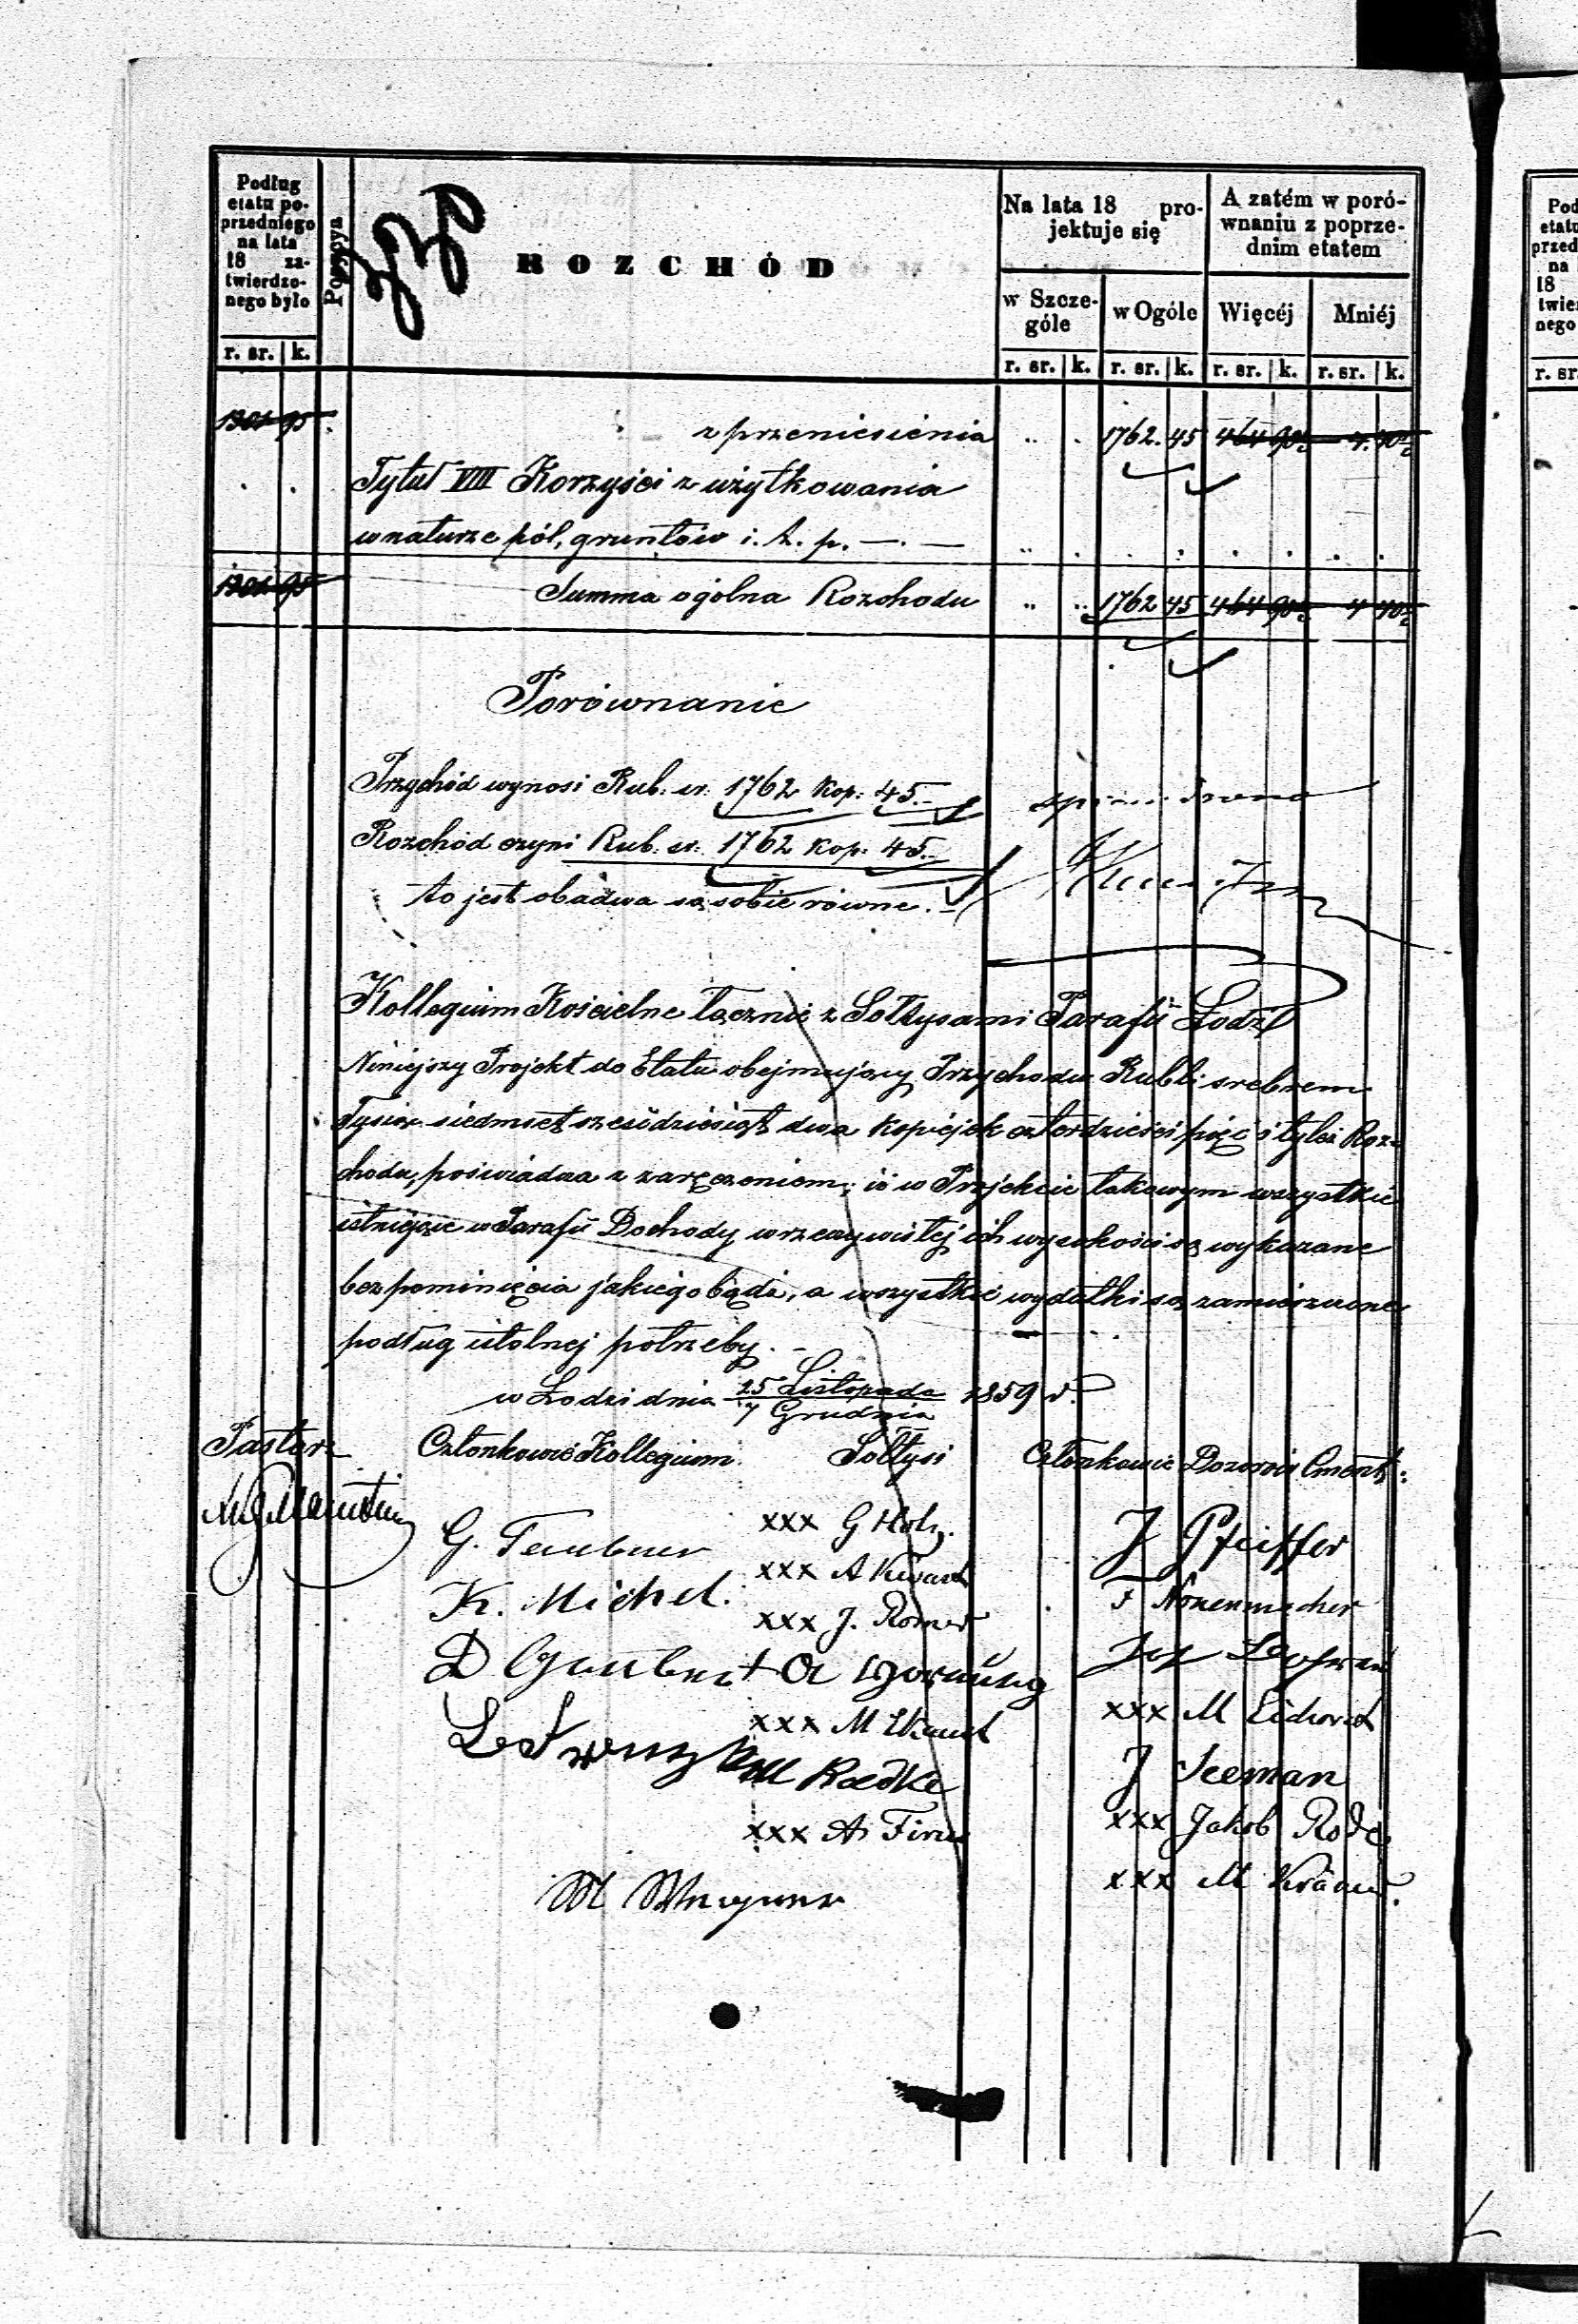 Podług
etatu po-
przedniego
na lata
18 za-
twierdzo-
nego było
Pozycya
ROZCHÓD
Na lata 18 pro-
jektuje się
A zatém w poró-
wnaniu z poprze-
dnim etatem
w Szcze-
góle
w Ogóle
Więcéj
Mniéj
r. sr. k.
r. sr. k. r. sr. k. r. sr. k. r. sr. k.
z przeniesienia 1762. 45 464 90½ 4. 40½
Tytuł VIII Korzyści z użytkowania
w naturze pól, gruntów i. t. p. —. —
Summa ogólna Rozchodu 1762 45 464 90½ 4 40½
Porównanie
Przychód wynosi Rub. sr. 1762 kop: 45.-
Rozchód czyni Rub. sr. 1762 kop. 45.-
to jest obadwa są sobie równe. -
Kollegium Kościelne łącznie z Sołtysami Parafii Łodzi
Niniejszy Projekt do Etatu obejmujący Przychodu Rubli srebrem
Tysiąc siedmset sześćdziesiąt dwa kopiejek czterdzieści pięć i tyleż Roz-
chodu, poświadcza z zaręczeniem, iż w Projekcie takowym wszystkie
istniejące w Parafii Dochody w rzeczywistej ich wysokości są wykazane
bez pominięcia jakiego bądź, a wszystkie wydatki są zamieszczone
podług istotnej potrzeby. -
w Łodzi dnia 25 Listopada / 7 Grudnia 1859 r.
Pastor Członkowie Kollegium. Sołtysi Członkowie Dozorów Cment:
G. Teubner xxx G Holz. J Pfeiffer
K. Michel. xxx A
xxx J. Romer F Nonenmacher
D A Hornung
xxx M xxx M
M Radke J Seeman
xxx A xxx Jakob Rode
M xxx M